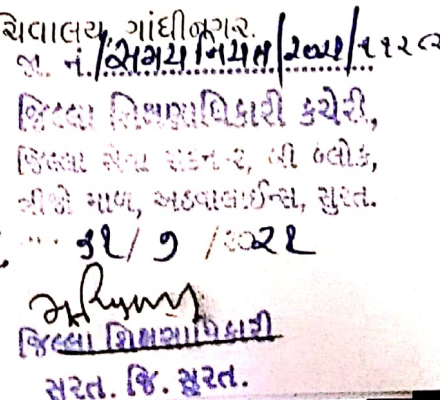 ચિવાલય, ગાંધીનગર.
જા. નં./સમય નિયત/૨૦૨૧/
જિલ્લા શિક્ષણાધિકારી કચેરી,
જિલ્લા સેવા સદન-૨, બી બ્લોક,
ત્રીજો માળ, અઠવાલાઈન્સ, સુરત.
૩૧/૭ /૨૦૨૧
જિલ્લા શિક્ષણાધિકારી
સુરત. જિ. સુરત.